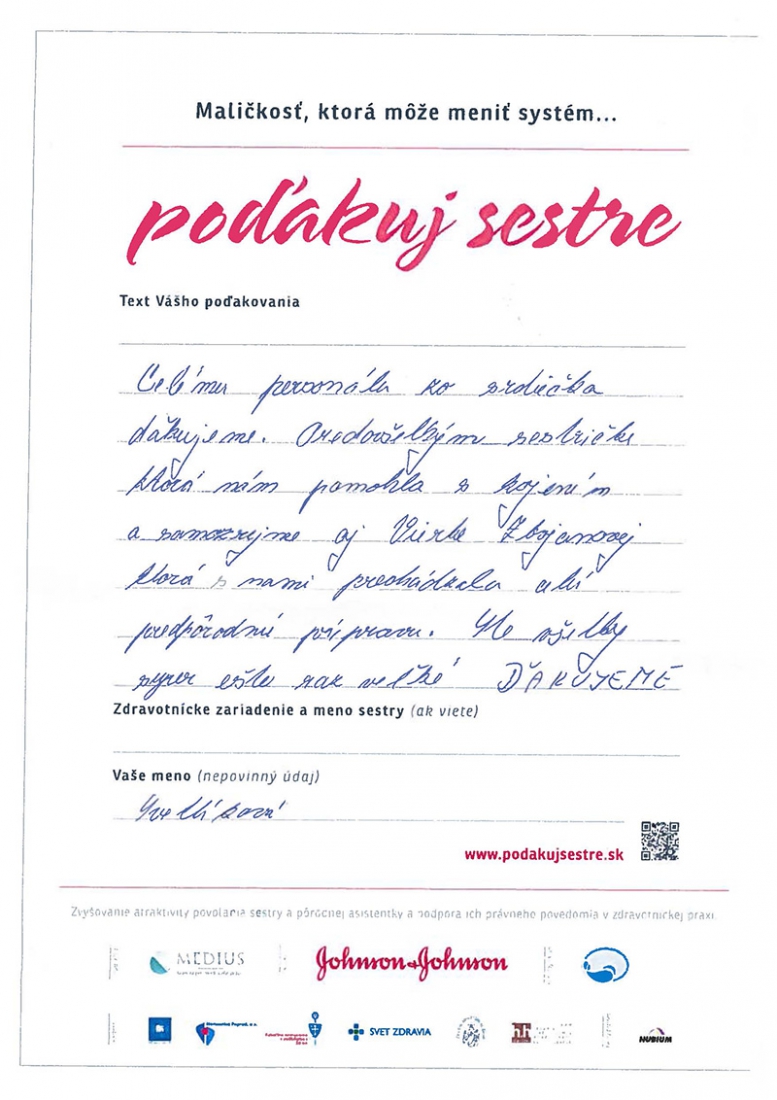 Maličkosť, ktorá môže meniť systém...
poďakuj sestre
Text Vášho poďakovania
Celému personálu zo srdiečka
ďakujeme. Predovšetkým sestričke
ktorá nám pomohla s kojením
a samozrejme aj Vierke Zbojanovej
ktorá s nami prechádzala
predpôrodnú prípravu. Ste všetky
super ešte raz veľké ĎAKUJEME
Zdravotnícke zariadenie a meno sestry (ak viete)
Vaše meno (nepovinný údaj)
www.podakujsestre.sk
Zvyšovanie atraktivity povolania sestry a pôrodnej asistentky a podpora ich právneho povedomia v zdravotníckej praxi
MEDIUS
Johnson & Johnson
SVET ZDRAVIA
NUBIUM